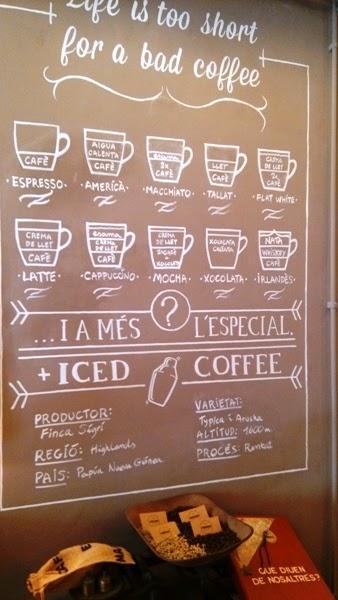 Life is too short
for a bad coffee
CAFÈ
·ESPRESSO·
AIGUA
CALENTA
CAFÈ
·AMERICÀ·
escuma
2x
CAFÈ
·MACCHIATO·
LLET
CAFÈ
·TALLAT·
CREMA
DE LLET
2x
CAFÈ
·FLAT WHITE·
CREMA
DE LLET
CAFÈ
·LATTE·
escuma
CREMA
DE LLET
CAFÈ
·CAPPUCCINO·
CREMA
DE LLET
CAFÈ
XOCOLATA
·MOCHA·
XOCOLATA
CALENTA
·XOCOLATA·
NATA
WHISKEY
CAFÈ
·IRLANDÈS·
?
...I A MÉS L'ESPECIAL.
+ ICED COFFEE
PRODUCTOR:
Finca Sigri
REGIÓ: Highlands
PAÍS: Papúa Nueva Guinea
VARIETAT:
Typica i Arusha
ALTITUD: 1600m
PROCÉS: Rentat
QUE DIUEN
DE NOSALTRES?